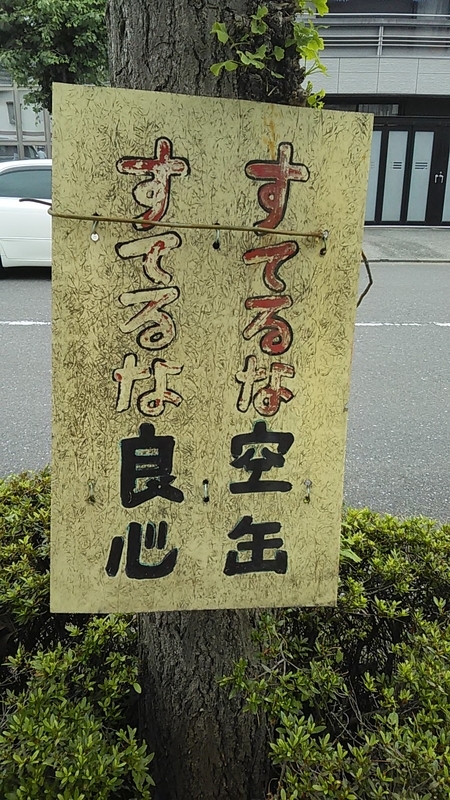 すてるな空缶
すてるな良心